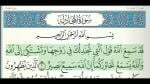 سورة المجادلة
بسم الله الرحمن الرحيم
قد سمع الله قول التي تجادلك في زوجها وتشتكي إلى الله
والله يسمع تحاوركما إن الله سميع بصير